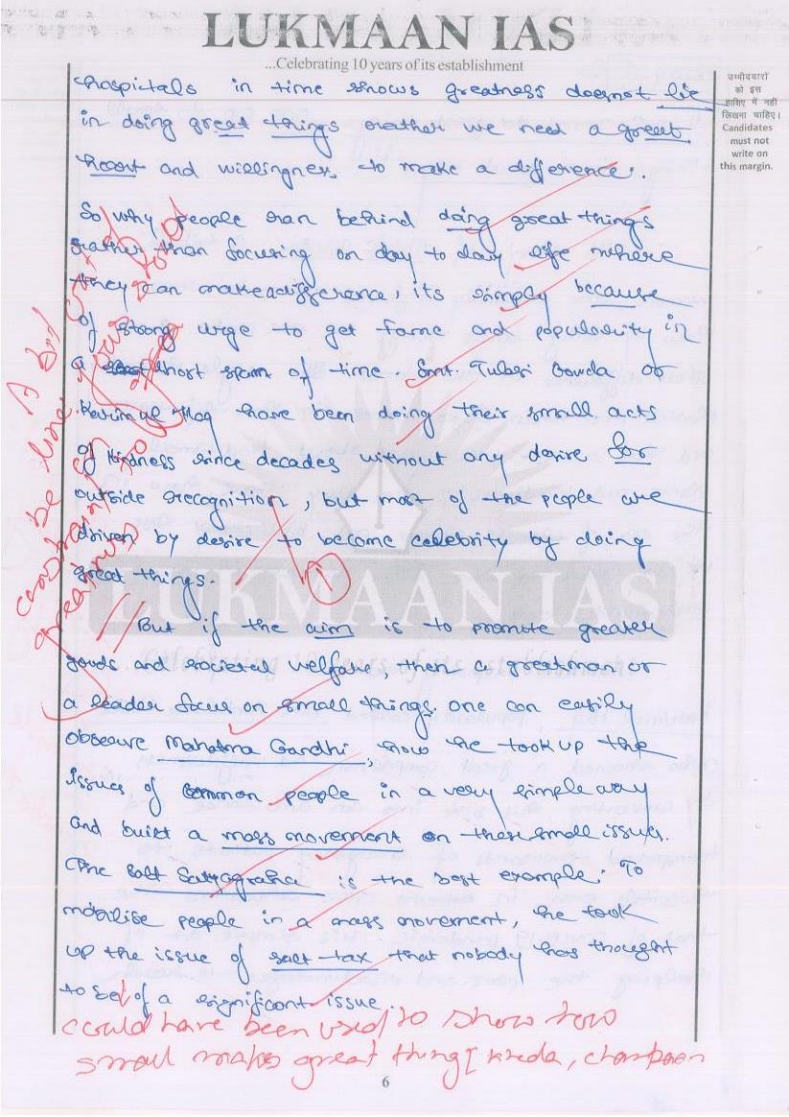 LUKMAAN IAS
...Celebrating 10 years of its establishment
उम्मीदवारों
को इस
हाशिए में नही
लिखना चाहिए।
Candidates
must not
write on
this margin.
hospitals in time shows greatness doesnot lie
in doing great things rather we need a great
heart and willingness to make a difference.
So why people ran behind doing great things
rather than focusing on day to day life where
they can make a difference, its simply because
of strong urge to get fame and popularity in
a short span of time. Smt. Tulasi Gowda or
Karimul Haq have been doing their small acts
of kindness since decades without any desire for
outside recognition, but most of the people are
driven by desire to become celebrity by doing
great things.
But if the aim is to promote greater
goods and societal welfare, then a great man or
a leader focus on small things. one can easily
obseure Mahatma Gandhi, how he took up the
issues of common people in a very simple way
and built a mass movement on these small issues.
The Salt Satyagraha is the best example. To
mobilise people in a mass movement, he took
up the issue of salt-tax that nobody has thought
to be of a significant issue.
could have been used to show how
small makes great thing [kheda, champaran
LUKMAAN IAS
6